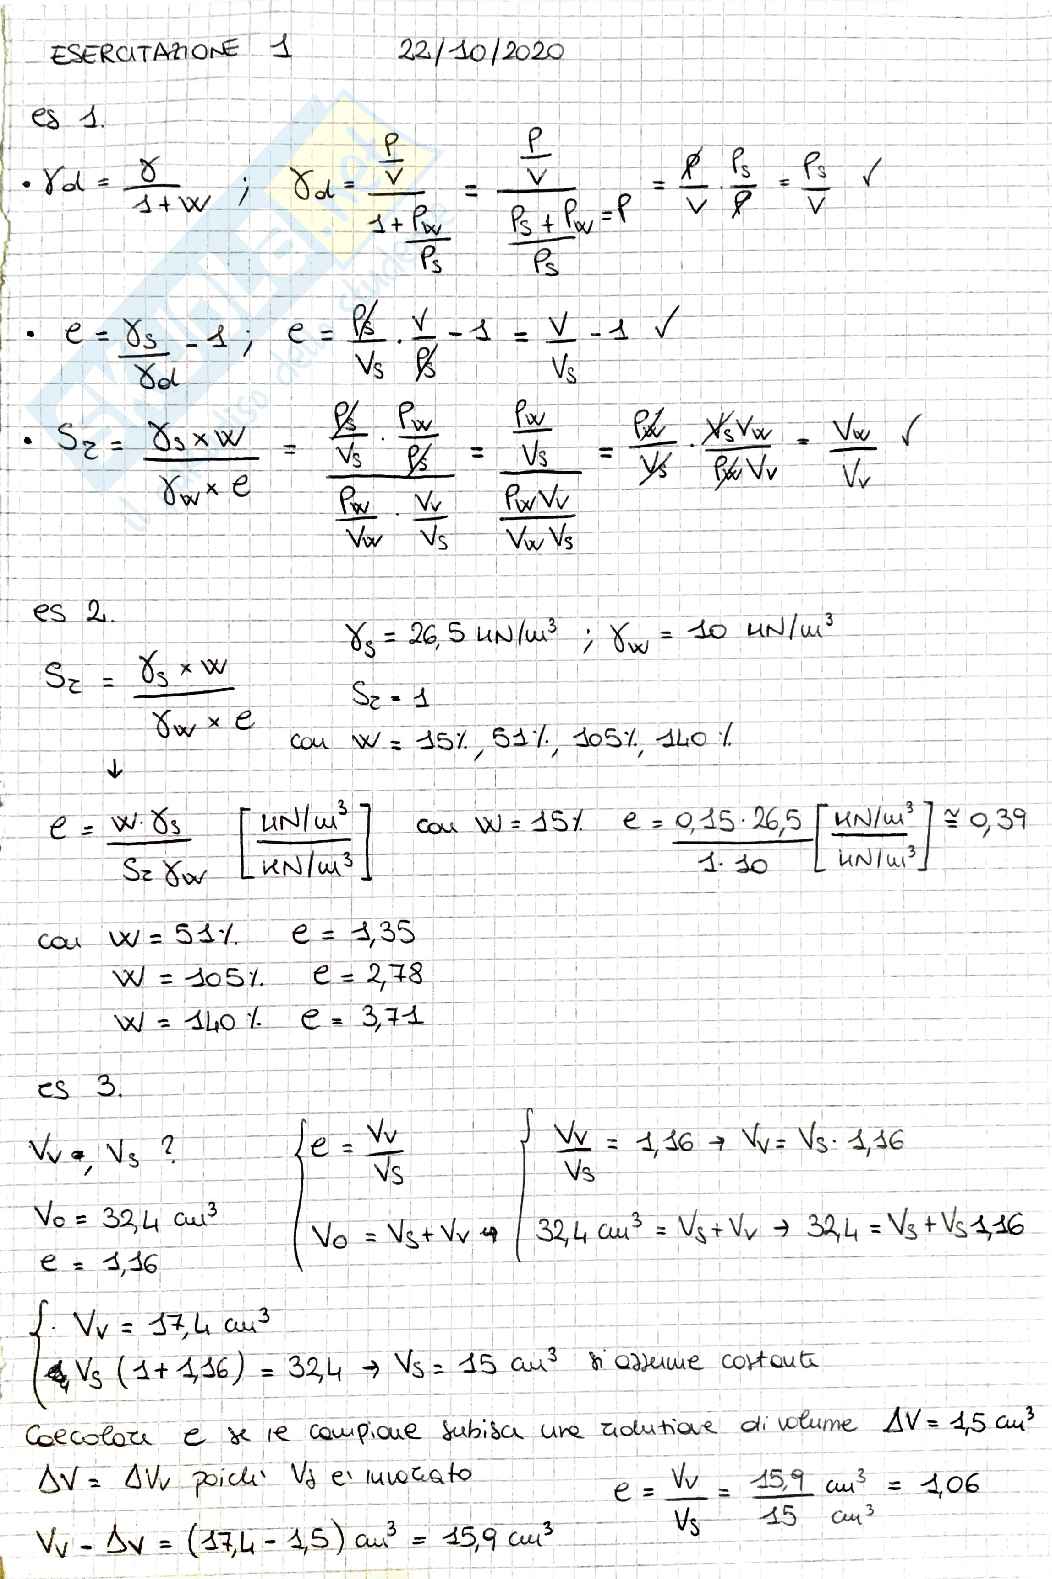 ESERCITAZIONE 1 22/10/2020
es 1.
• γd = γ / (1+w) ; γd = (P/V) / (1 + Pw/Ps) = (P/V) / ((Ps + Pw = P) / Ps) = P/V · Ps/P = Ps/V ✓
• e = γs/γd - 1 ; e = Ps/Vs · V/Ps - 1 = V/Vs - 1 ✓
• Sr = (γs × w) / (γw × e) = (Ps/Vs · Pw/Ps) / (Pw/Vw · Vv/Vs) = (Pw/Vs) / (Pw Vv / Vw Vs) = Pw/Vs · Vs Vw / Pw Vv = Vw/Vv ✓
es 2.
γs = 26,5 kN/m³ ; γw = 10 kN/m³
Sr = (γs × w) / (γw × e)
Sr = 1
con w = 15%, 51%, 105%, 140%
↓
e = w·γs / Sr γw [kN/m³ / kN/m³] con w = 15% e = 0,15·26,5 / 1·10 [kN/m³ / kN/m³] ≅ 0,39
con w = 51% e = 1,35
w = 105% e = 2,78
w = 140% e = 3,71
es 3.
Vv e, Vs ?
{ e = Vv/Vs { Vv/Vs = 1,16 → Vv = Vs · 1,16
V0 = 32,4 cm³
V0 = Vs + Vv → 32,4 cm³ = Vs + Vv → 32,4 = Vs + Vs 1,16
e = 1,16
{ · Vv = 17,4 cm³
Vs (1 + 1,16) = 32,4 → Vs = 15 cm³ si assume costante
Calcolare e se il campione subisce una riduzione di volume ΔV = 1,5 cm³
ΔV = ΔVv poiché Vs è invariato
e = Vv/Vs = 15,9/15 cm³/cm³ = 1,06
Vv - ΔV = (17,4 - 1,5) cm³ = 15,9 cm³